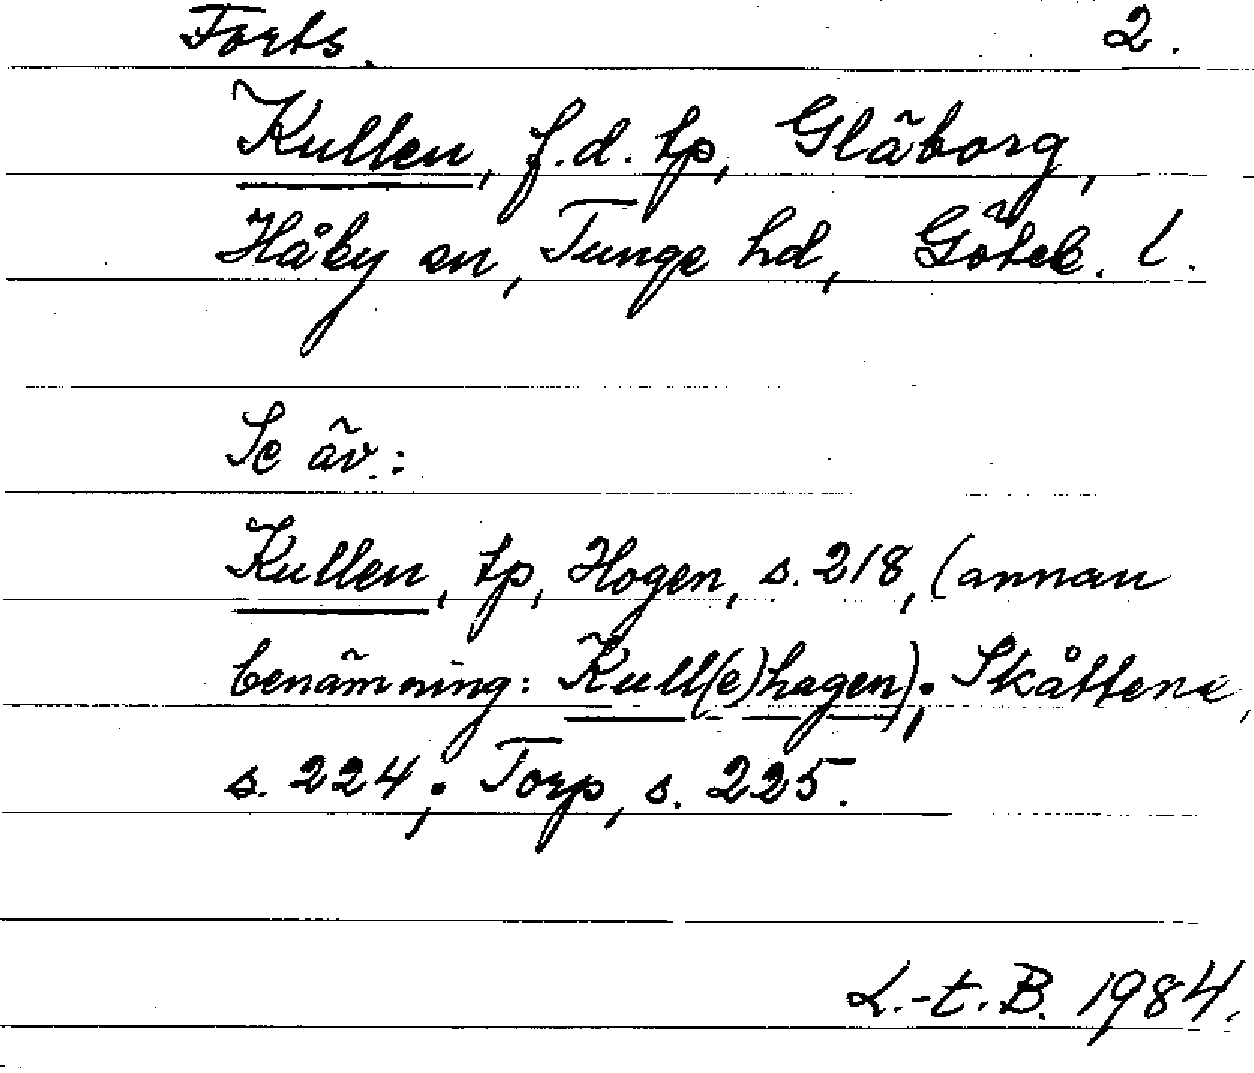 Forts. 2.
Kullen, f.d. tp, Gläborg,
Håby sn, Tunge hd, Göteb. l.
Se äv.:
Kullen, tp, Hogen, s. 218, (annan
benämning: Kull(e)hagen); Skåttene,
s. 224; Torp, s. 225.
L.-t. B. 1984.